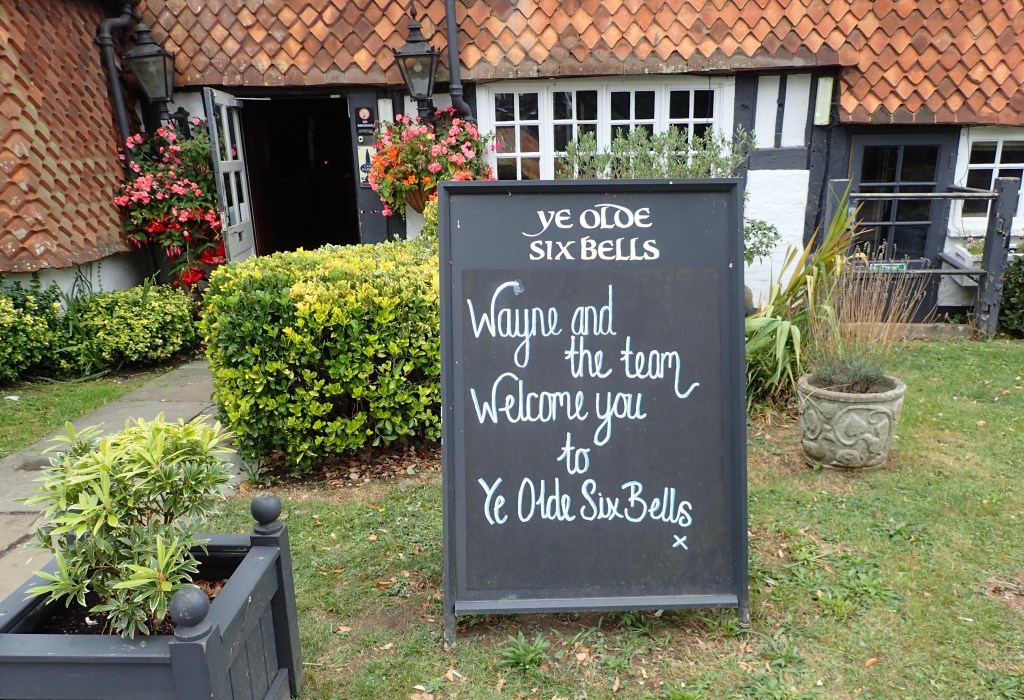 ye olde
six bells
Wayne and
the team
Welcome you
to
Ye Olde Six Bells
x